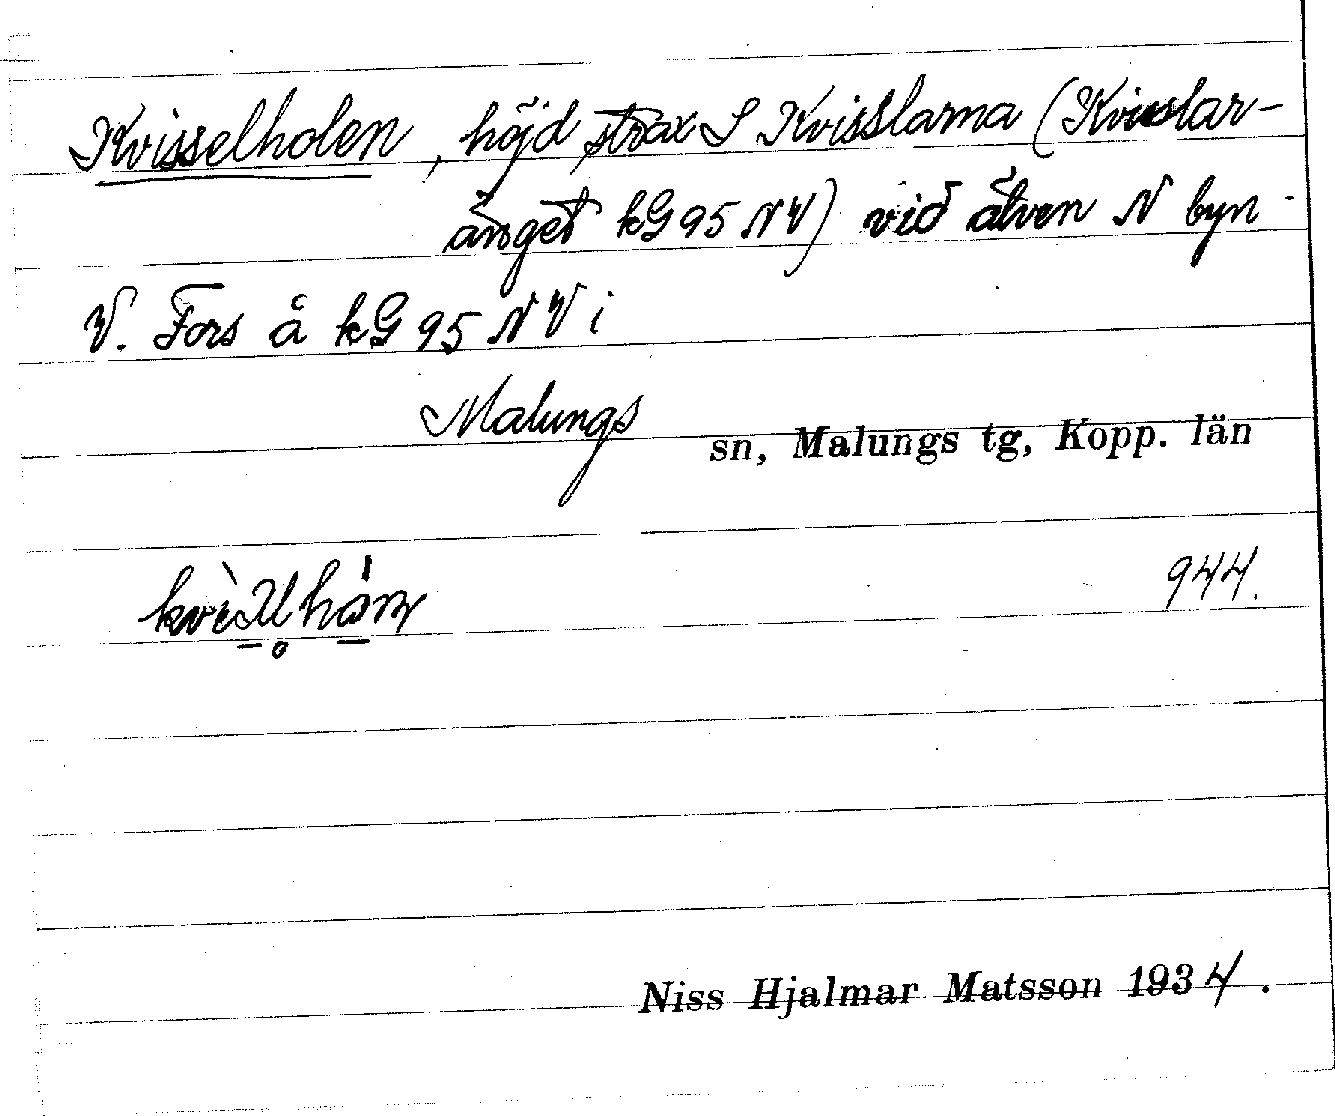 Kvisselholen, höjd strax S Kvisslarna (Kvisslar-
änget kG 95 NV) vid älven N byn
V. Fors å kG 95 NV i
Malungs sn, Malungs tg, Kopp. län
944.
Niss Hjalmar Matsson 1934.